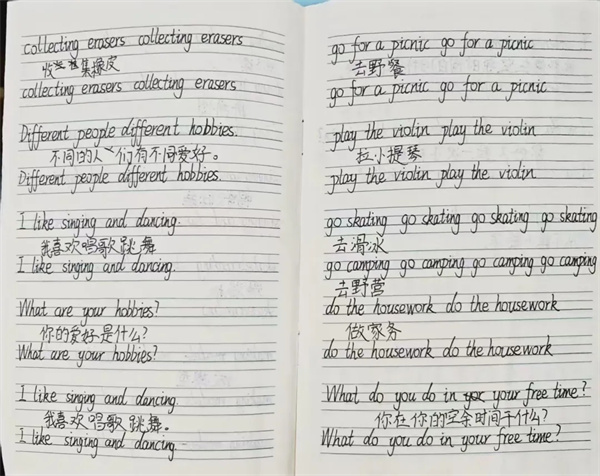 collecting erasers collecting erasers
收集橡皮
collecting erasers collecting erasers
Different people different hobbies.
不同的人们有不同爱好。
Different people different hobbies.
I like singing and dancing.
我喜欢唱歌跳舞
I like singing and dancing.
What are your hobbies?
你的爱好是什么?
What are your hobbies?
I like singing and dancing.
我喜欢唱歌跳舞。
I like singing and dancing.
go for a picnic go for a picnic
去野餐
go for a picnic go for a picnic
play the violin play the violin
拉小提琴
play the violin play the violin
go skating go skating go skating go skating
去滑冰
go camping go camping go camping go camping
去野营
do the housework do the housework
做家务
do the housework do the housework
What do you do in your free time?
你在你的空余时间干什么?
What do you do in your free time?